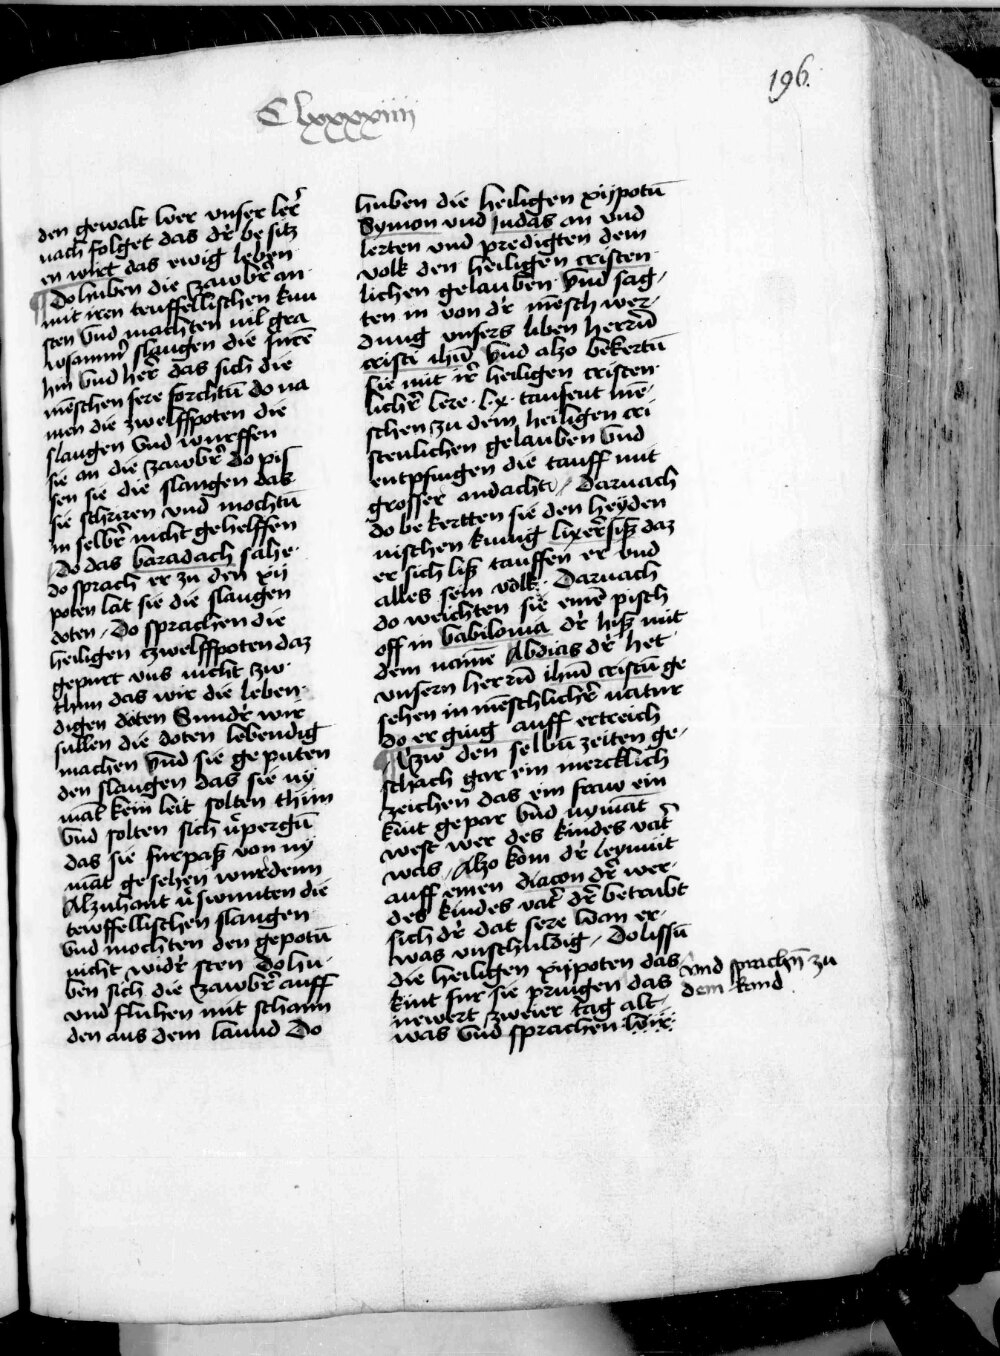 196.
Clxxxxiiii
den gewalt wer vnser ler̄
nach folget das dr̄ be sitz
en wirt das ewig leben
Do huben die zawbr̄ an
mit iren teuffellischen kun
sten vnd machten vil gra
wsamm̄ slangen die furē
hin vnd her̄ das sich die
mēschen sere forchtū do na
men die zwelffpoten die
slangen vnd wurffen
sie an die zawbr̄ do pis
sen sie die slangen das
sie schriren vnd mochtū
in selbr̄ nicht gehelffen
Do das baradach sahe
do sprach er zu den xij
poten lat sie die slangen
doten / Do sprachen die
heiligen czwelffpoten daz
gepurt vns nicht zw
thun das wir die leben
digen döten Sundr̄ wir
sullen die doten lebendig
machen vnd sie geputen
den slangen das sie ny
māt kein leit solten thun
vnd solten sich v̄pergū
das sie furpaß von ny
māt gesehen wurdenn
Alzuhant v̄swunten die
tewffellischen slangen
vnd mochten den gepotū
nicht widr̄ sten Do hu
ben sich die zawbr̄ auff
vnd fluhen mit schann
den aus dem lannd Do
huben die heiligen xijpotū
Symon vnd Judas an vnd
lerten vnd predigten dem
volk den heiligen cristen
lichen gelauben vnd sag
ten in von dr̄ mēsch wer
dung vnsers liben herrn̄
cristi ihū vnd alzo bekertū
sie mit ir̄ heiligen cristen
lichr̄ lere · lx · tausent mē
schen zu dem heiligen cri
stenlichen gelauben vnd
entpfingen die tauff mit
grosser andacht // Darnach
do be kertten sie den heyden
nischen kunig lixer̄siß daz
er sich liß tauffen er vnd
alles sein volk · Darnach
do weichten sie einē pisch
off in babilonia dr̄ hiß mit
dem namē Abdias dr̄ het
vnsern herrn̄ ihm̄ cristū ge
sehen in mēschlichr̄ natur
do er ging auff ertreich
Zw den selbn̄ zeiten ge
schach gar ein mercklich
zeichen das ein fraw ein
kint gepar vnd nymāt
west wer des kindes vat̄
was / Alzo kom dr̄ leymut
auff einen diacon dr̄ wer
des kindes vat̄ dr̄ betrubt
sich dr̄ dat sere wan er
was vnschuldig / Do lissū
die heiligen xijpoten das
kint fur sie pringen das
newert zweier tag alt
was vnd sprachen wir
vnd sprachn̄ zu
dem kind